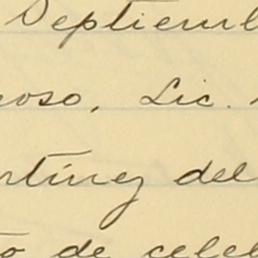 Septiemb
oso, Lic.
rtínez del
to de celeb